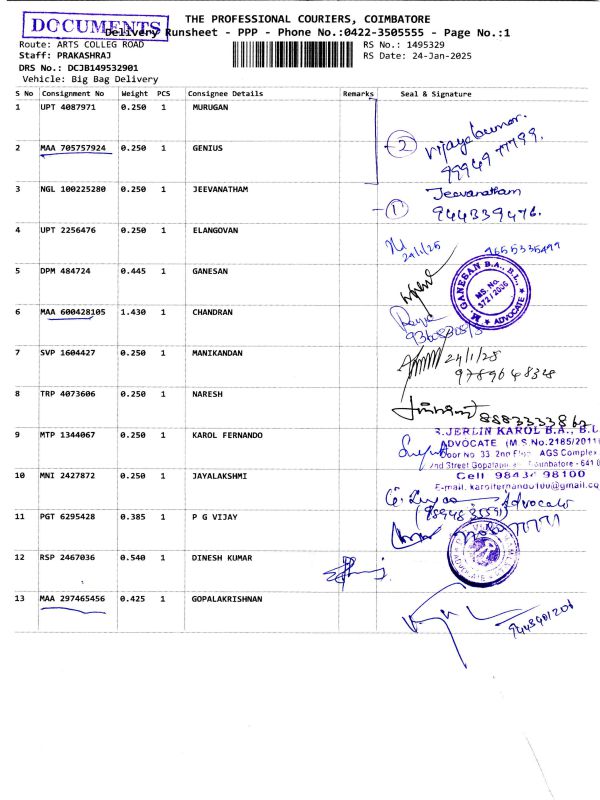 DOCUMENTS
THE PROFESSIONAL COURIERS, COIMBATORE
Delivery Runsheet - PPP - Phone No.:0422-3505555 - Page No.:1
Route: ARTS COLLEG ROAD
RS No.: 1495329
Staff: PRAKASHRAJ
RS Date: 24-Jan-2025
DRS No.: DCJB149532901
Vehicle: Big Bag Delivery
S No Consignment No Weight PCS Consignee Details Remarks Seal & Signature
1 UPT 4087971 0.250 1 MURUGAN
2 MAA 705757924 0.250 1 GENIUS
2 Vijayakumar.
99949 77799.
3 NGL 100225280 0.250 1 JEEVANATHAM
Jeevanatham
1 944339476.
4 UPT 2256476 0.250 1 ELANGOVAN
24/1/25 9655335499
5 DPM 484724 0.445 1 GANESAN
M. GANESAN B.A., B.L.
MS. No. 572/2006
ADVOCATE
6 MAA 600428105 1.430 1 CHANDRAN
7 SVP 1604427 0.250 1 MANIKANDAN
24/1/25
9789648328
8 TRP 4073606 0.250 1 NARESH
9 MTP 1344067 0.250 1 KAROL FERNANDO
R.JERLIN KAROL B.A., B.L
ADVOCATE (M.S.No.2185/2011)
Door No 33 2nd Floor AGS Complex
2nd Street Gopalapuram Coimbatore - 641 0
Cell 98434 98100
E-mail. karolfernando100@gmail.co
10 MNI 2427872 0.250 1 JAYALAKSHMI
Advocate
11 PGT 6295428 0.385 1 P G VIJAY
12 RSP 2467036 0.540 1 DINESH KUMAR
13 MAA 297465456 0.425 1 GOPALAKRISHNAN
9443401201